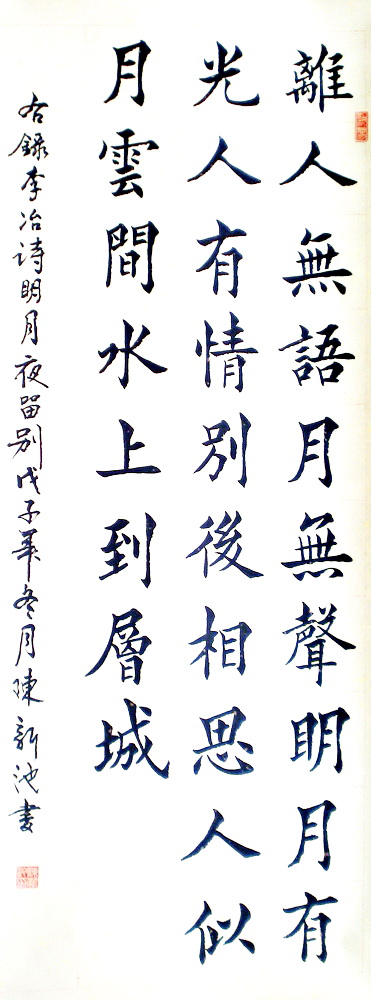 離人無語月無聲明月有
光人有情別後相思人似
月雲間水上到層城
右錄李冶詩明月夜留別戊子年冬月陳新池書